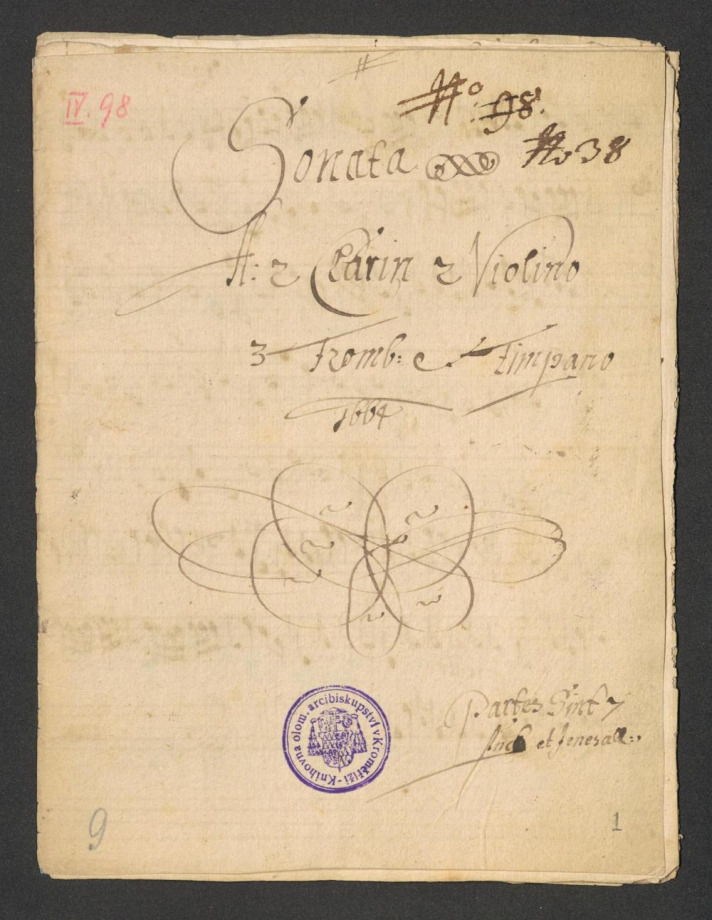 IV. 98
No. 98.
Sonata No 38
A: 2 Clarin 2 Violino
3 Tromb: e Timpano
1664
Partes Sint
et Jenerall:
Knihovna olom. arcibiskupství v Kroměříži -
9
1